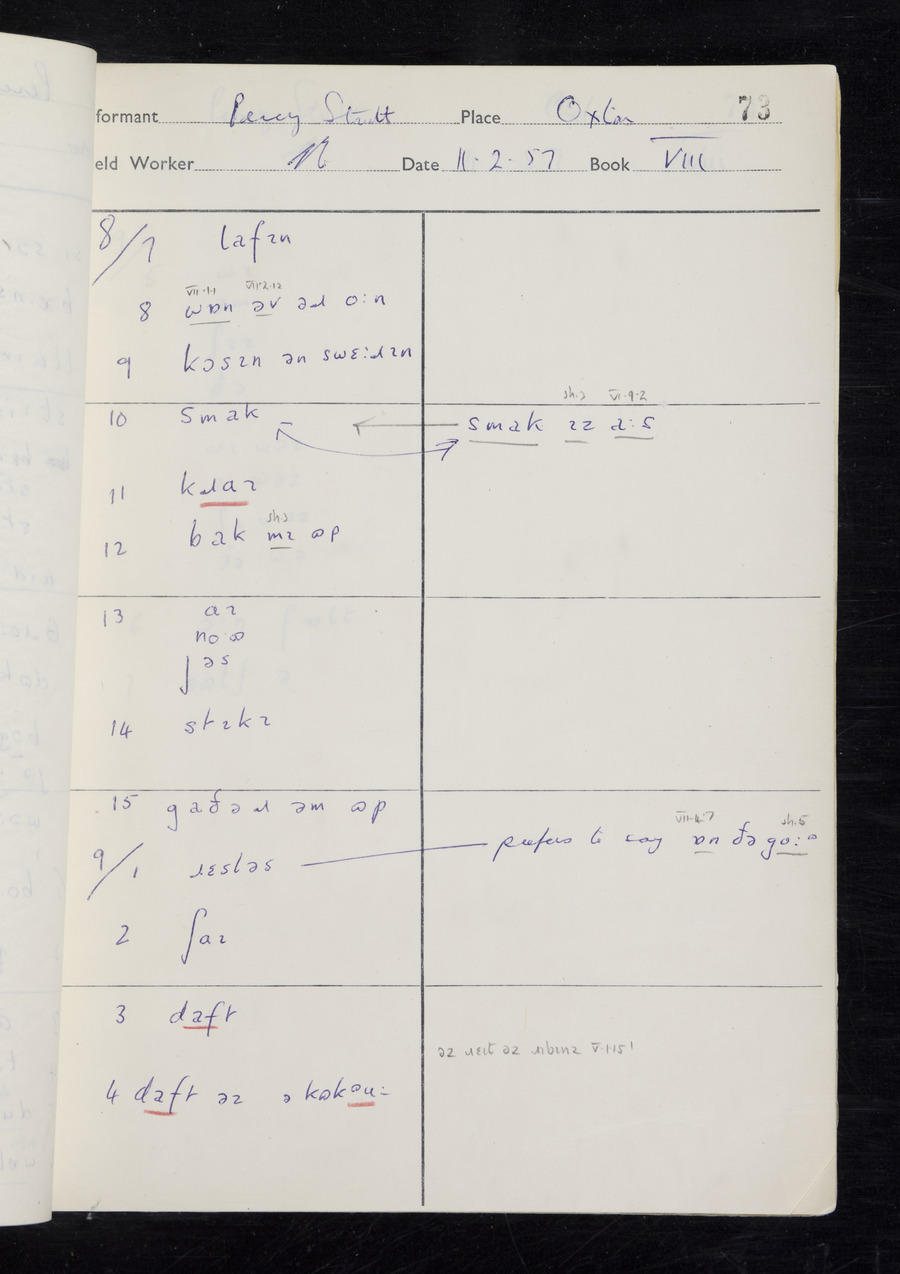 formant Percy Place Oxton 73
eld Worker Date 11·2·57 Book VIII
8/7 lafɪn
VII·1·1 VII·2·12
8 wɒn əv əɹ oːn
9 kɔsɪn ən swɛːɹɪn
10 smak
sh.3 VI·9·2
smak ɪz aːs
11 kɹaɪ
sh.3
12 bak mɪ ɷp
13 aɪ
noːɷ
ʃəs
14 stɪkɪ
15 gaðəɹ əm ɷp
VII·4·7 sh.5
9/1 ɹɛstəs prefers to say ɒn ðə goːᵊ
2 ʃaɪ
3 daft
əz V·1·15!
4 daft əz ə